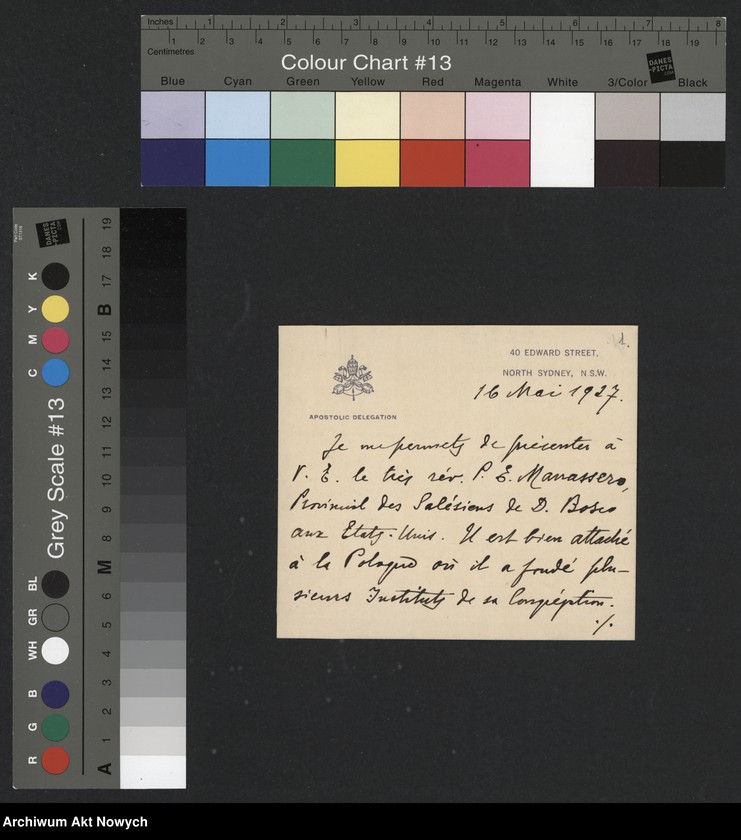 Inches 1 2 3 4 5 6 7 8
1 2 3 4 5 6 7 8 9 10 11 12 13 14 15 16 17 18 19
Centimetres
Colour Chart #13
DANES-PICTA.COM
Blue Cyan Green Yellow Red Magenta White 3/Color Black
Grey Scale #13
DANES-PICTA.COM
C M Y K
R G B WH GR BL
A 1 2 3 4 5 6 M 8 9 10 11 12 13 14 15 B 17 18 19
1.
40 EDWARD STREET,
NORTH SYDNEY, N.S.W.
APOSTOLIC DELEGATION
16 Mai 1927.
Je me permets de présenter à
V. E. le très rév. P. E. Manassero,
Provincial des Salésiens de D. Bosco
aux Etats-Unis. Il est bien attaché
à la Pologne où il a fondé plu-
sieurs Instituts de sa Congrégation.
./.
Archiwum Akt Nowych